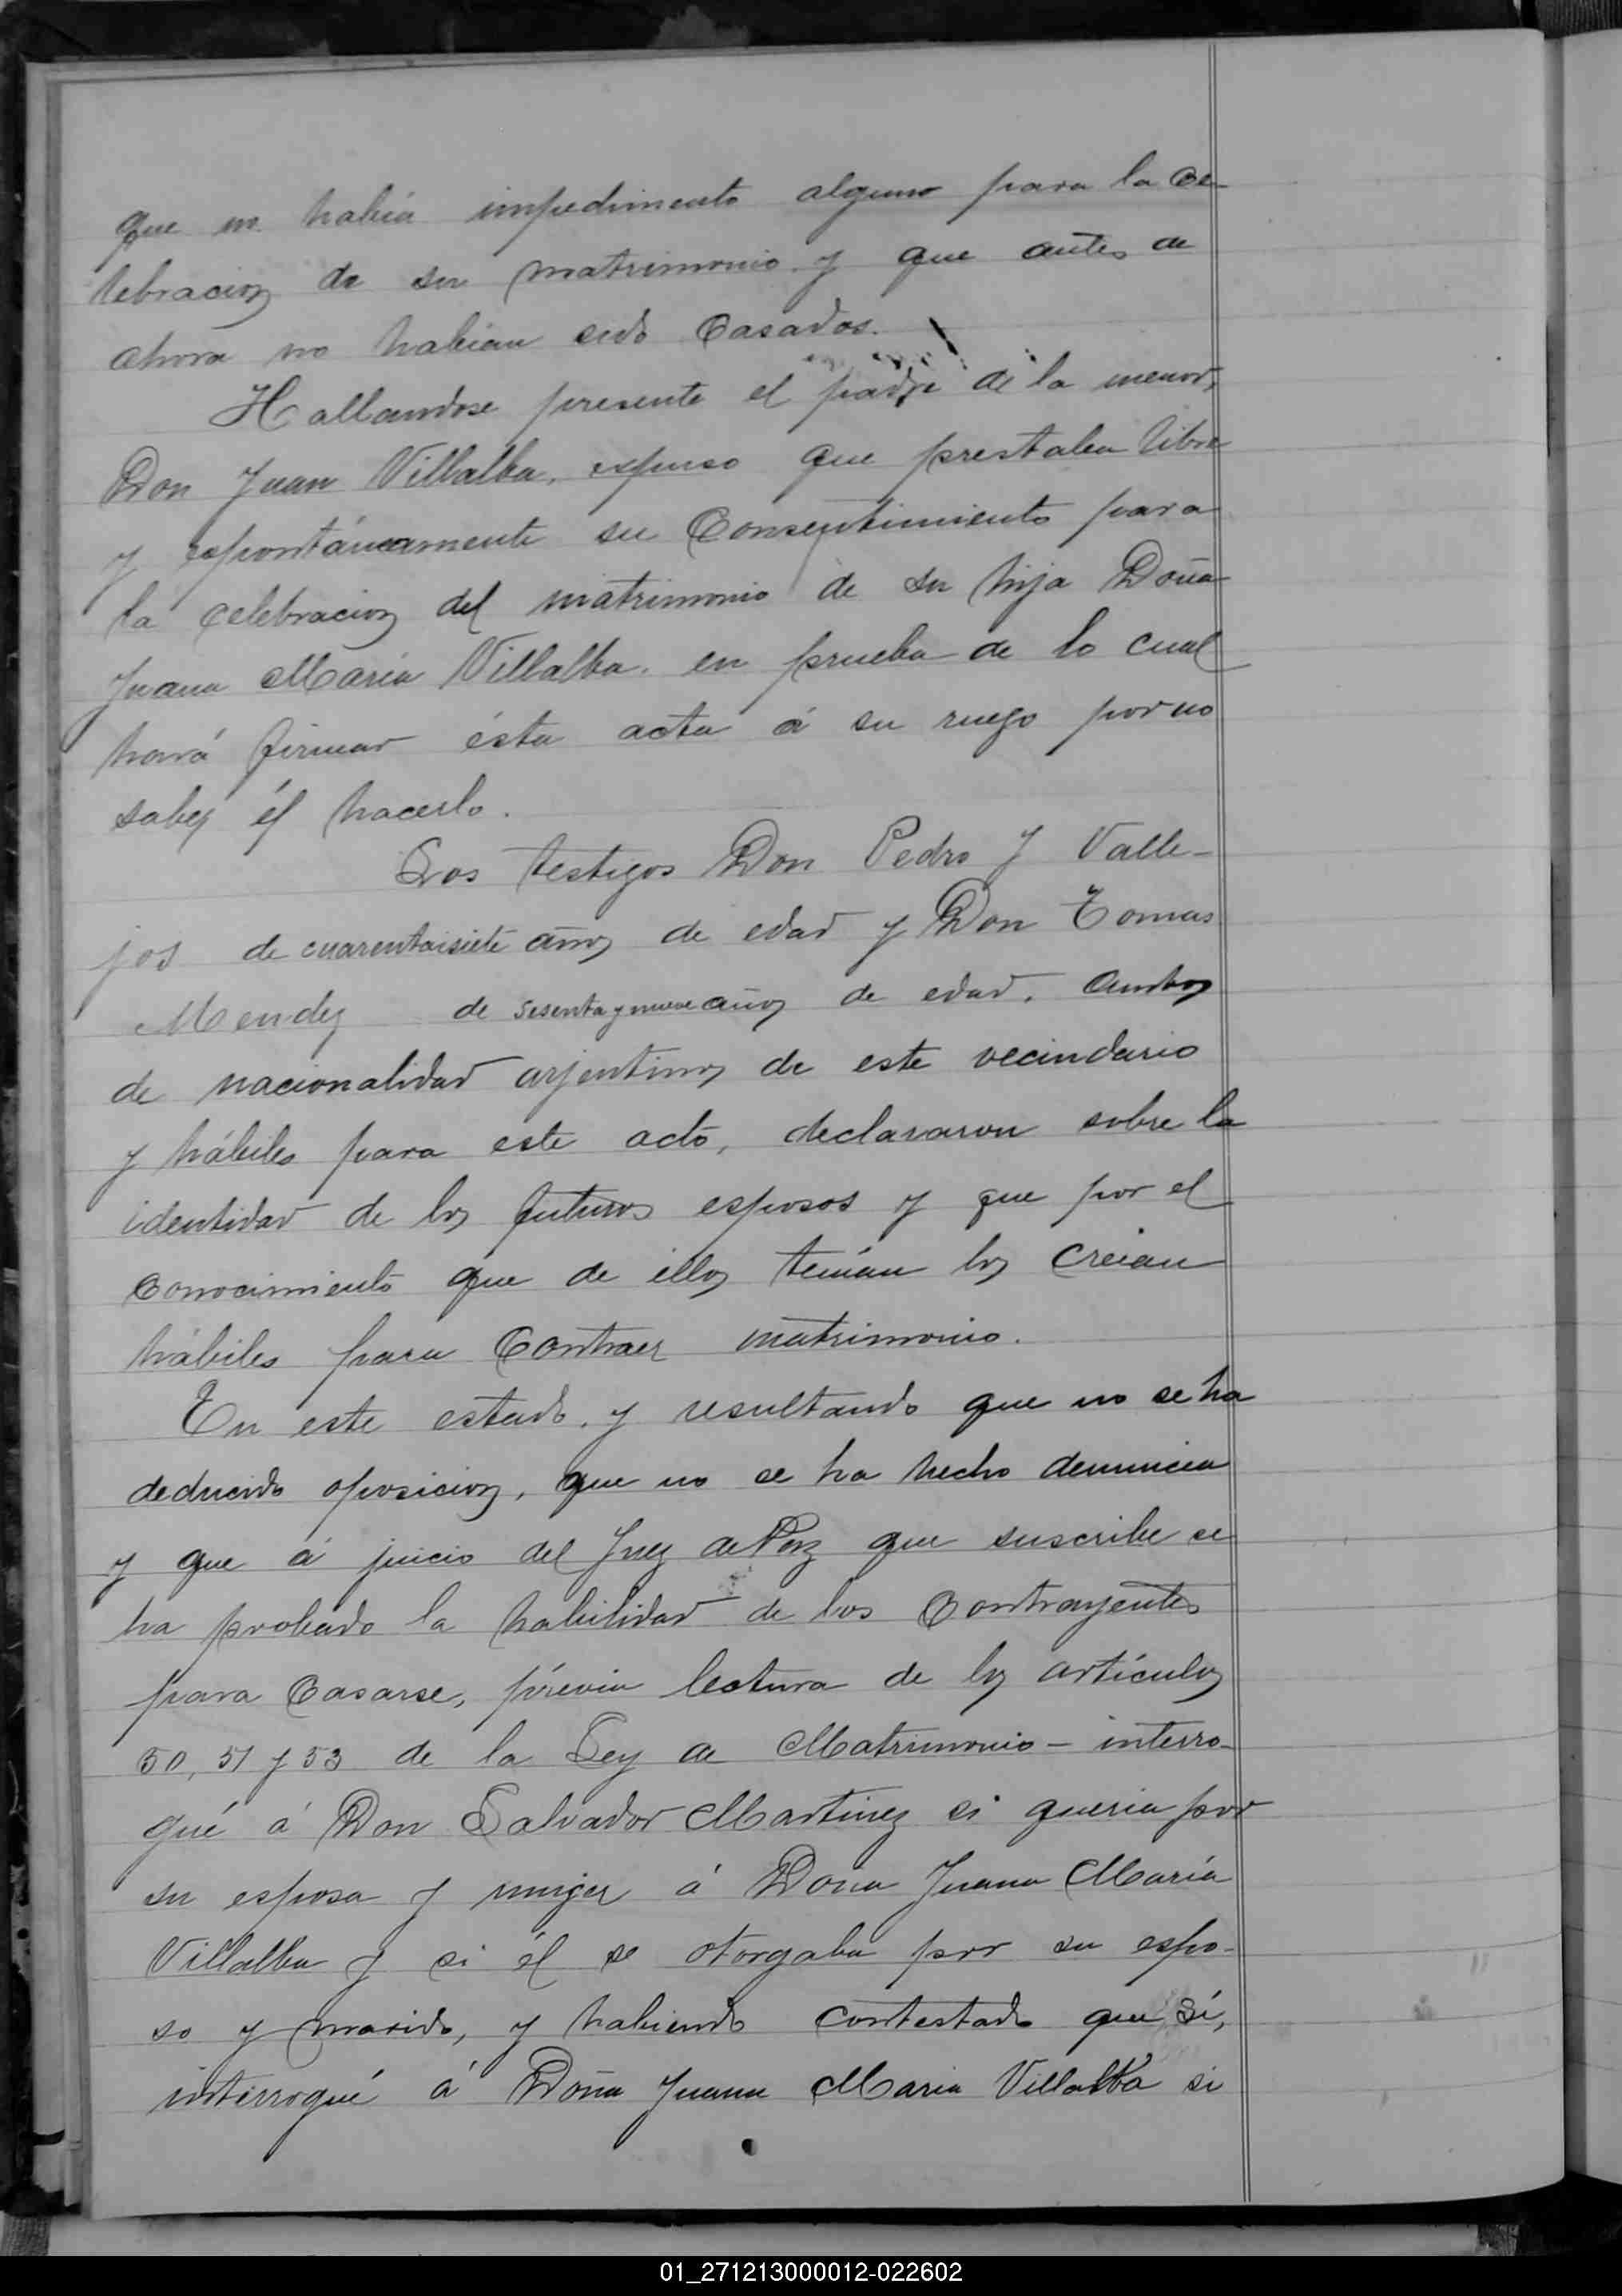 que no habia impedimento alguno para la ce-
lebracion de su matrimonio y que antes de
ahora no habian sido casados.
Hallandose presente el padre de la menor,
Don Juan Villalba, espuso que prestaba libre
y espontáneamente su consentimiento para
la celebracion del matrimonio de su hija Doña
Juana Maria Villalba, en prueba de lo cual
hará firmar ésta acta á su ruego por no
saber él hacerlo.
Los testigos Don Pedro J Valle-
jos de cuarentaisiete años de edad y Don Tomas
Mendez de sesenta y nueve años de edad, ambos
de nacionalidad arjentinos de este vecindario
y hábiles para este acto, declararon sobre la
identidad de los futuros esposos y que por el
conocimiento que de ellos tenían los creian
hábiles para contraer matrimonio.
En este estado, y resultando que no se ha
deducido oposicion, que no se ha hecho denuncia
y que á juicio del Juez de Paz que suscribe se
ha probado la habilidad de los contrayentes
para casarse, prévia lectura de los artículos
50, 51 y 53 de la Ley de Matrimonio - interro-
gué á Don Salvador Martinez si queria por
su esposa y muger á Doña Juana María
Villalba y si él se otorgaba por su espo-
so y marido, y habiendo contestado que sí,
interrogué á Doña Juana Maria Villalba si
01_271213000012-022602